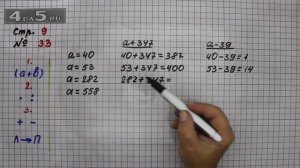 Стр. 9
№ 33
1.
(а+в)
2.
· :
3.
+ −
Л→П
а+347 а-39
а=40 40+347=387 40-39=1
а=53 53+347=400 53-39=14
а=282 282+347=
а=558